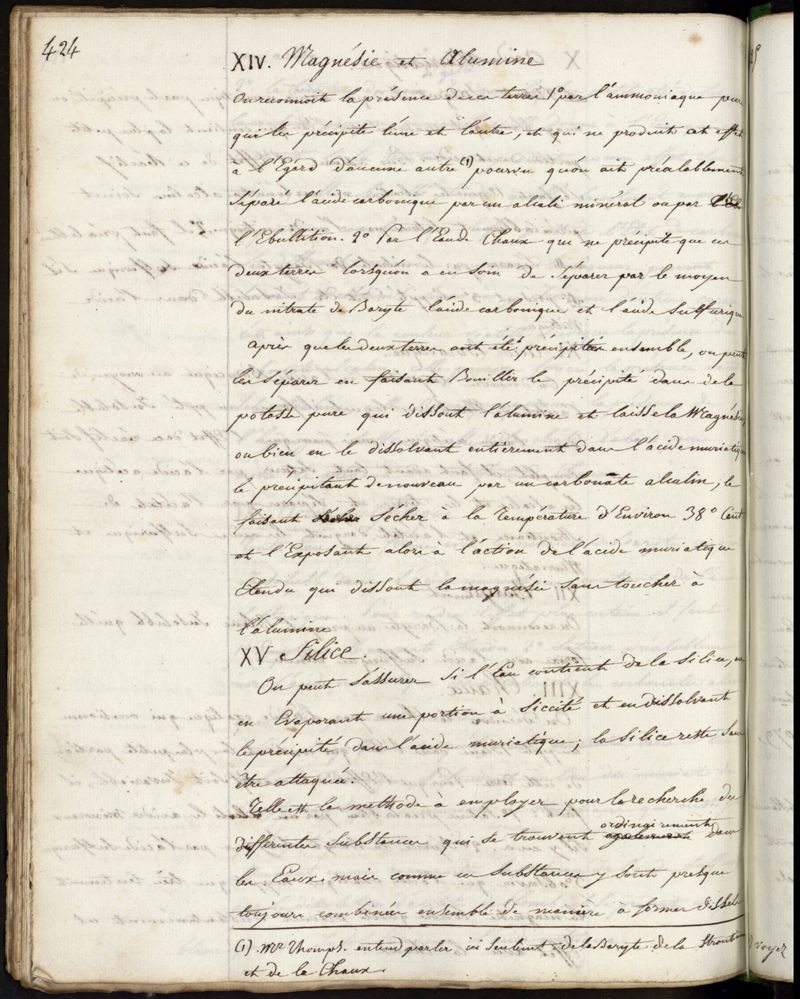 424
XIV. Magnésie et Alumine
On reconnoit la présence de ces terres 1º par l'ammoniaque pure
qui les précipite l'une et l'autre, et qui ne produit cet effet
à l'Egard d'aucune autre (1) pourvu qu'on ait préalablement
séparé l'acide carbonique par un alcali minéral ou par
l'Ebullition. 2º Par l'Eau de Chaux qui ne précipite que ces
deux terres lorsqu'on a eu soin de séparer par le moyen
du nitrate de Baryte l'acide carbonique et l'acide sulfurique
après que les deux terres ont été précipitées ensemble, on peut
les séparer en faisant Bouillir le précipité dans de la
potasse pure qui dissout l'alumine et laisse la Magnésie,
ou bien en le dissolvant entièrement dans l'acide muriatique
le précipitant de nouveau par un carbonate alcalin, le
faisant sécher à la Température d'Environ 38º Cent
et l'Exposant alors à l'action de l'acide muriatique
Etendu qui dissout la magnésie sans toucher à
l'alumine
XV Silice.
On peut s'assurer si l'Eau contient de la silice,
en Evaporant une portion à siccité et en dissolvant
le précipité dans l'acide muriatique; la silice reste sans
être attaquée.
Telle est la methode à employer pour la recherche des
differentes substances qui se trouvent ordinairement dans
les Eaux. mais comme ces substances y sont presque
toujours combinées ensemble de manière à former des Sels
(1) Mr Thomps. entend parler ici seulemt de la Baryte de la Strontiane
et de la Chaux.